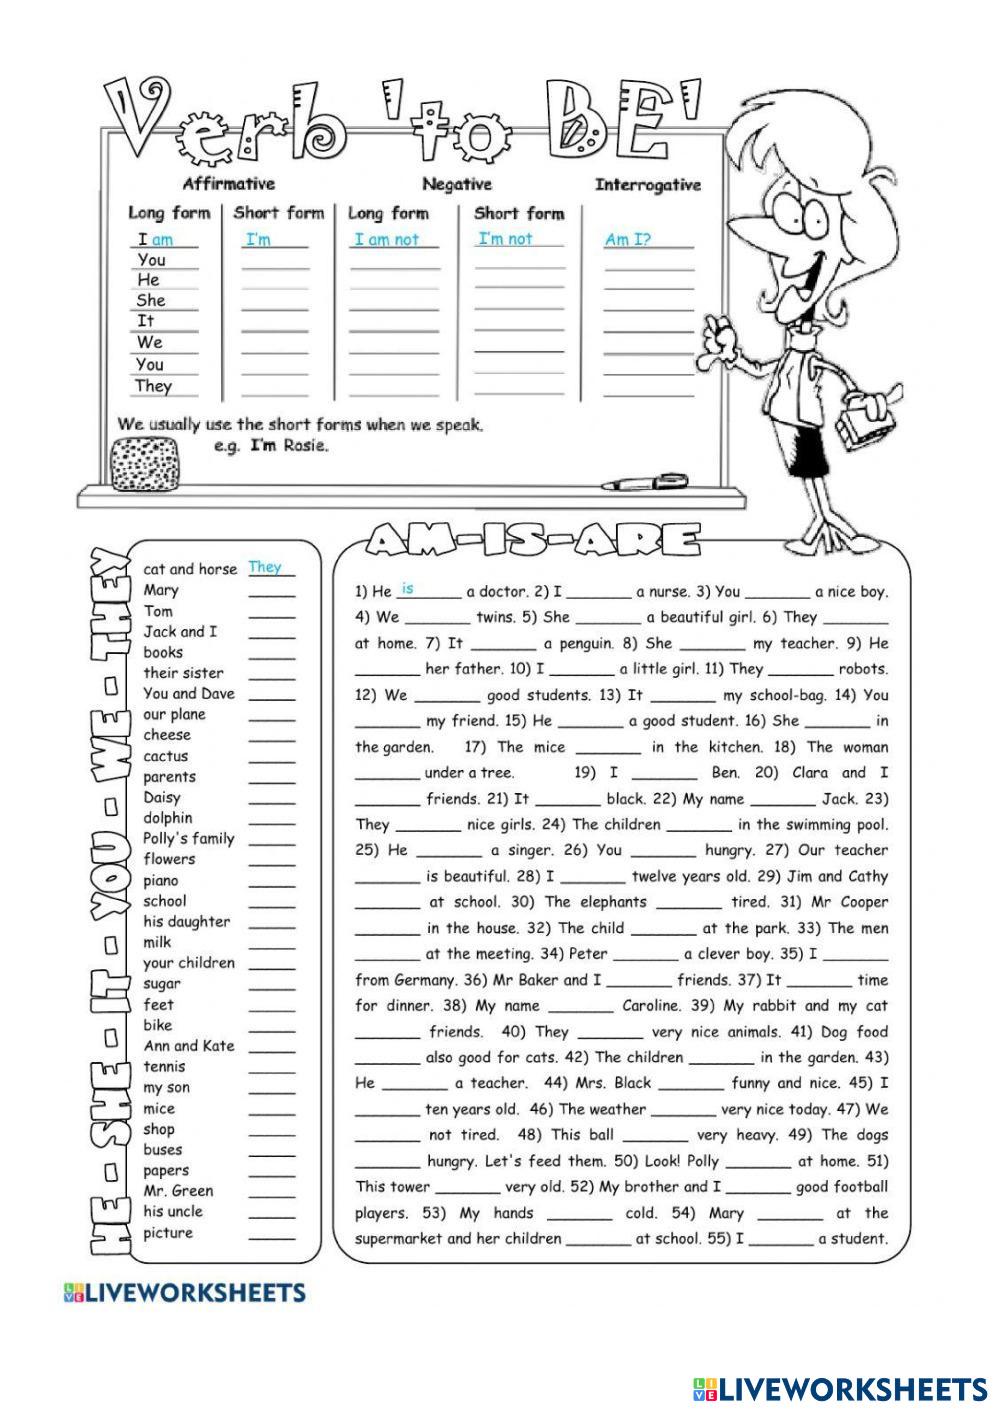 Verb 'to BE'
Affirmative Negative Interrogative
Long form Short form Long form Short form
I am I'm I am not I'm not Am I?
You
He
She
It
We
You
They
We usually use the short forms when we speak.
e.g. I'm Rosie.
HE - SHE - IT - YOU - WE - THEY
cat and horse They
Mary
Tom
Jack and I
books
their sister
You and Dave
our plane
cheese
cactus
parents
Daisy
dolphin
Polly's family
flowers
piano
school
his daughter
milk
your children
sugar
feet
bike
Ann and Kate
tennis
my son
mice
shop
buses
papers
Mr. Green
his uncle
picture
AM-IS-ARE
1) He is a doctor. 2) I ________ a nurse. 3) You ________ a nice boy.
4) We ________ twins. 5) She ________ a beautiful girl. 6) They ________
at home. 7) It ________ a penguin. 8) She ________ my teacher. 9) He
________ her father. 10) I ________ a little girl. 11) They ________ robots.
12) We ________ good students. 13) It ________ my school-bag. 14) You
________ my friend. 15) He ________ a good student. 16) She ________ in
the garden. 17) The mice ________ in the kitchen. 18) The woman
________ under a tree. 19) I ________ Ben. 20) Clara and I
________ friends. 21) It ________ black. 22) My name ________ Jack. 23)
They ________ nice girls. 24) The children ________ in the swimming pool.
25) He ________ a singer. 26) You ________ hungry. 27) Our teacher
________ is beautiful. 28) I ________ twelve years old. 29) Jim and Cathy
________ at school. 30) The elephants ________ tired. 31) Mr Cooper
________ in the house. 32) The child ________ at the park. 33) The men
________ at the meeting. 34) Peter ________ a clever boy. 35) I ________
from Germany. 36) Mr Baker and I ________ friends. 37) It ________ time
for dinner. 38) My name ________ Caroline. 39) My rabbit and my cat
________ friends. 40) They ________ very nice animals. 41) Dog food
________ also good for cats. 42) The children ________ in the garden. 43)
He ________ a teacher. 44) Mrs. Black ________ funny and nice. 45) I
________ ten years old. 46) The weather ________ very nice today. 47) We
________ not tired. 48) This ball ________ very heavy. 49) The dogs
________ hungry. Let's feed them. 50) Look! Polly ________ at home. 51)
This tower ________ very old. 52) My brother and I ________ good football
players. 53) My hands ________ cold. 54) Mary ________ at the
supermarket and her children ________ at school. 55) I ________ a student.
LIVE LIVEWORKSHEETS
LIVE LIVEWORKSHEETS